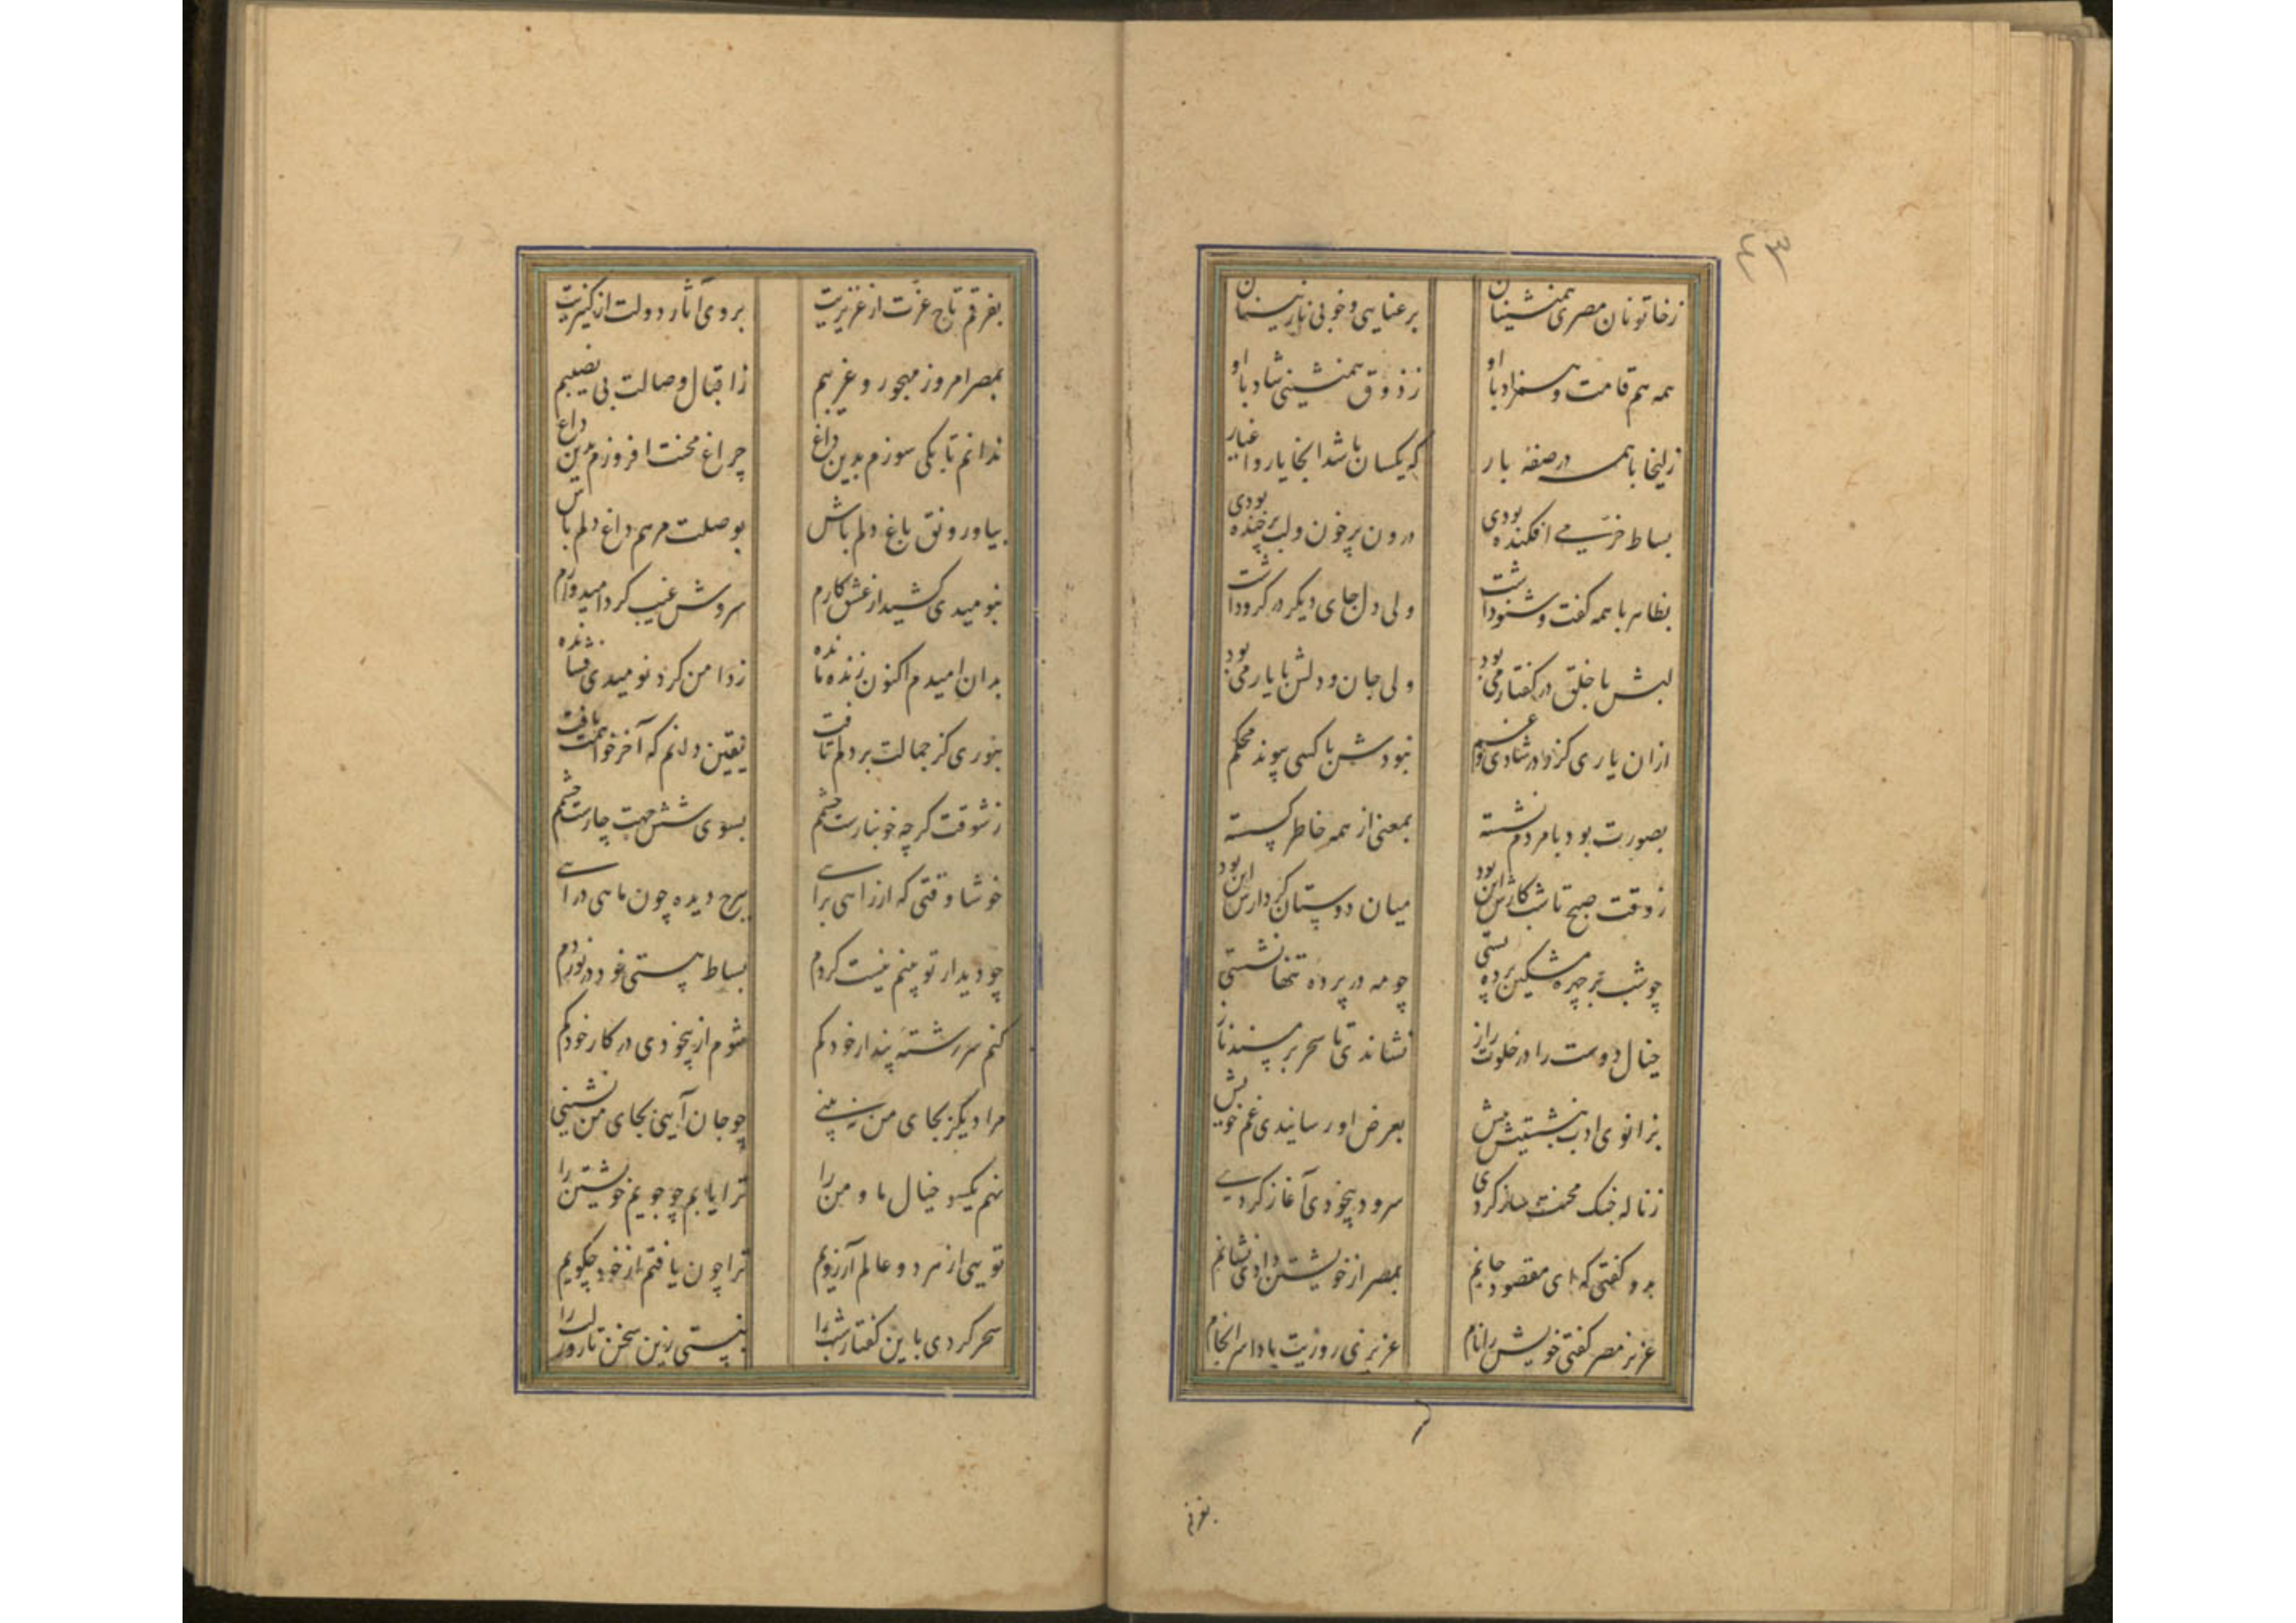 ۴۳
زخاتونان مصری همنشینان برعنایی و خوبی نازنینان
همه هم قامت و همزاد با او ز ذوق همنشینی شاد با او
زلیخا با همه در صفه بار که یکسان باشد انجا یار و اغیار
بساط خرمی افکنده بودی درون پرخون و لب پرخنده بودی
بظاهر با همه گفت و شنود داشت ولی دل جای دیگر در گرو داشت
لبش با خلق در گفتار می بود ولی جان و دلش با یار می بود
ازان یاری کزاو در شادی و غم نبودش با کسی پیوند محکم
بصورت بود با مردم نشسته بمعنی از همه خاطر گسسته
ز وقت صبح تا شب کارش این بود میان دوستان کردارش این بود
چو شب بر چهره مشکین پرده بستی چو مه در پرده تنها نشستی
خیال دوست را در خلوت راز نشاندی تا سحر بر مسند ناز
بزانوی ادب بنشستیش پیش بعرض او رسانیدی غم خویش
ز ناله چنگ محنت ساز کردی سرود بیخودی آغاز کردی
بدو گفتی که ای مقصود جانم بمصر از خویشتن دادی نشانم
عزیز مصر گفتی خویش را نام عزیزی روزیت بادا سرانجام
بفرقم
بفرقم تاج عزت از عزیزیت بروی آثار دولت از کنیزیت
بمصر امروز مهجور و غریبم ز اقبال وصالت بی نصیبم
ندانم تا بکی سوزم بدین داغ چراغ محنت افروزم بدین داغ
بیا و رونق باغ دلم باش بوصلت مرهم داغ دلم باش
بنومیدی کشید از عشق کارم سروش غیب کرد امیدوارم
بدان امیدم اکنون زنده مانده ز دامن گرد نومیدی فشانده
بنوری کز جمالت بر دلم تافت یقین دانم که آخر خواهمت یافت
ز شوقت گرچه خونبارست چشمم بسوی شش جهت چارست چشمم
خوشا وقتی که از راهی برآیی ببرج دیده چون ماهی درآیی
چو دیدار تو بینم نیست گردم بساط هستی خود درنوردم
کنم سررشته پندار خود گم شوم از بیخودی در کار خود گم
مرا دیگر بجای من نبینی چو جان آیی بجای من نشینی
نهم یکسو خیال ما و من را ترا یابم چو جویم خویشتن را
تویی از هر دو عالم آرزویم ترا چون یافتم از خود چگویم
سحر کردی باین گفتار شب را نبستی زین سخن تا روز لب را